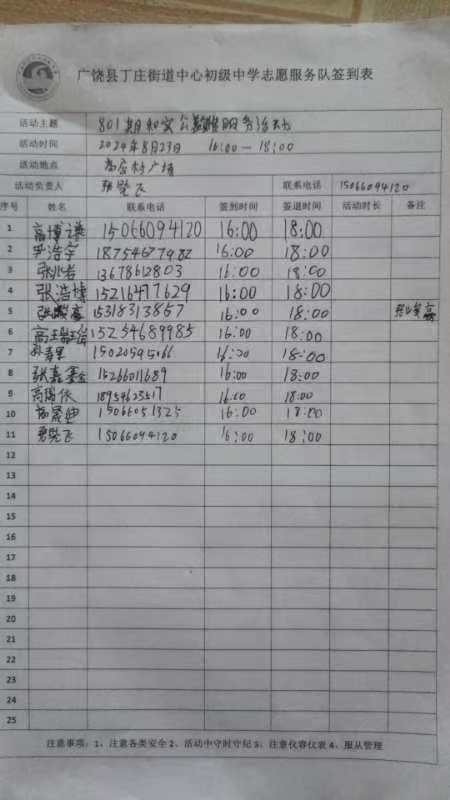 广饶县丁庄街道中心初级中学志愿服务队签到表
活动主题 801期和安公益志愿服务活动
活动时间 2024年8月23日 16:00—18:00
活动地点 村广场
活动负责人 飞 联系电话 15066094120
序号 姓名 联系电话 签到时间 签退时间 活动时长 备注
1 高博谦 15066094120 16:00 18:00
2 尹浩宇 18754677982 16:00 18:00
3 张 13678612803 16:00 18:00
4 张浩博 15216477629 16:00 18:00
5 张 15318313857 16:00 18:00
6 高 15254689985 16:00 18:00
7 15020595066 16:00 18:00
8 张嘉 15266011689 16:00 18:00
9 高 18954623517 16:00 18:00
10 15066051325 16:00 18:00
11 飞 15066094120 16:00 18:00
12
13
14
15
16
17
18
19
20
21
22
23
24
25
注意事项：1、注意各类安全 2、活动中守时守纪 3、注意仪容仪表 4、服从管理